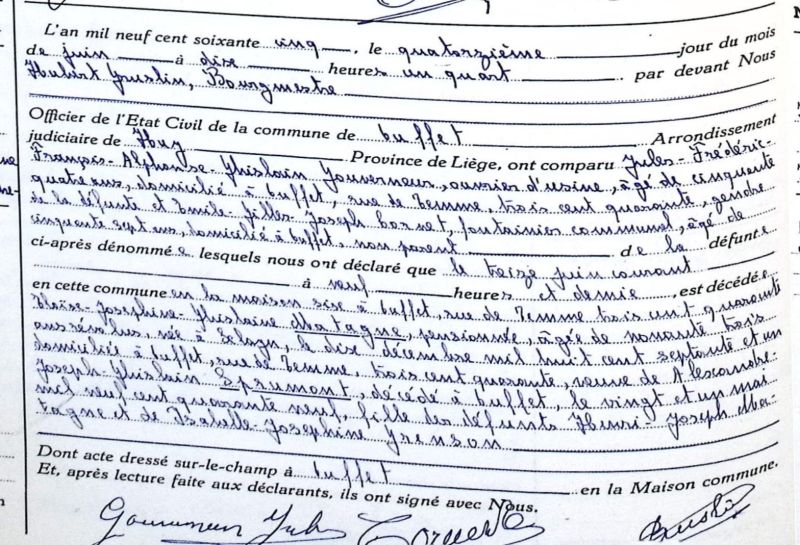 L'an mil neuf cent soixante cinq, le quatorzième jour du mois
de juin à dix heures un quart par devant Nous
Hubert Gustin, Bourgmestre
Officier de l'Etat Civil de la commune de Buffet Arrondissement
judiciaire de Huy Province de Liège, ont comparu Jules-Frédéric-
François-Alphonse-Ghislain Gouverneur, ouvrier d'usine, âgé de cinquante
quatre ans, domicilié à Buffet, rue de Temme, trois cent quarante, gendre
de la défunte et Emile-Gilles-Joseph Cornet, fontainier communal, âgé de
cinquante sept ans, domicilié à Buffet, non parent de la défunte
ci-après dénommée lesquels nous ont déclaré que le treize juin courant
à neuf heures et demie, est décédée
en cette commune en la maison sise à Buffet, rue de Temme trois cent quarante
Joséphine-Ghislaine Matagne, pensionnée, âgée de nonante trois
ans révolus, née à Sclayn, le dix décembre mil huit cent septante et un
domiciliée à Buffet, rue de Temme, trois cent quarante, veuve de Alexandre-
Joseph-Ghislain Sprumont, décédé à Buffet, le vingt et un mai
mil neuf cent quarante neuf, fille des défunts Henri-Joseph Ma-
tagne et de Isabelle-Josephine Grenson
Dont acte dressé sur-le-champ à Buffet en la Maison commune.
Et, après lecture faite aux déclarants, ils ont signé avec Nous.
Gouverneur Jules Cornet E Gustin